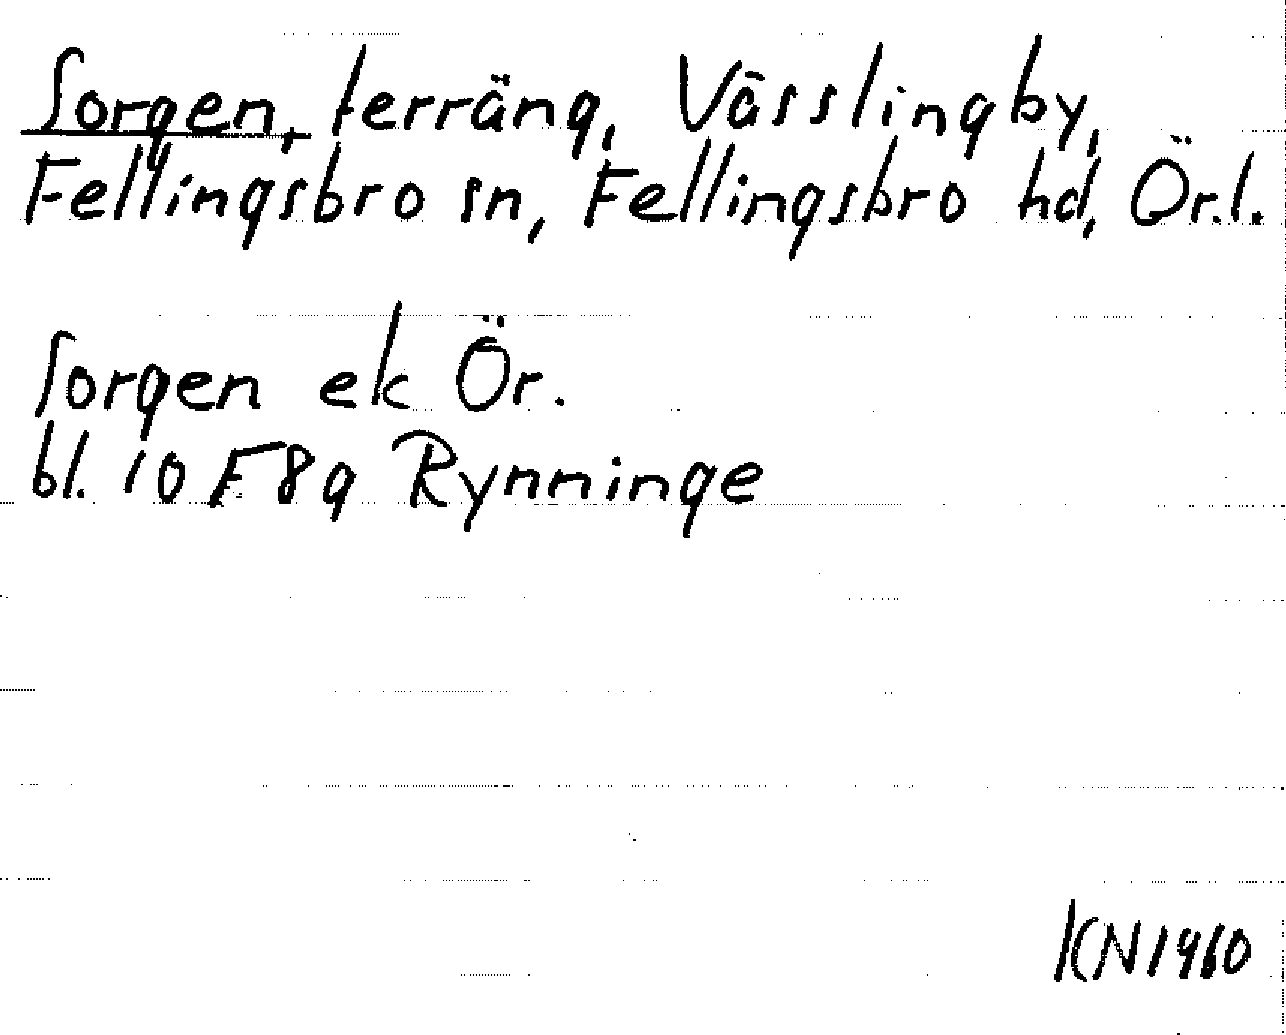 Sorgen, terräng, Vässlingby,
Fellingsbro sn, Fellingsbro hd, Ör.l.
Sorgen ek Ör.
bl. 10 F 8g Rynninge
KN 1960